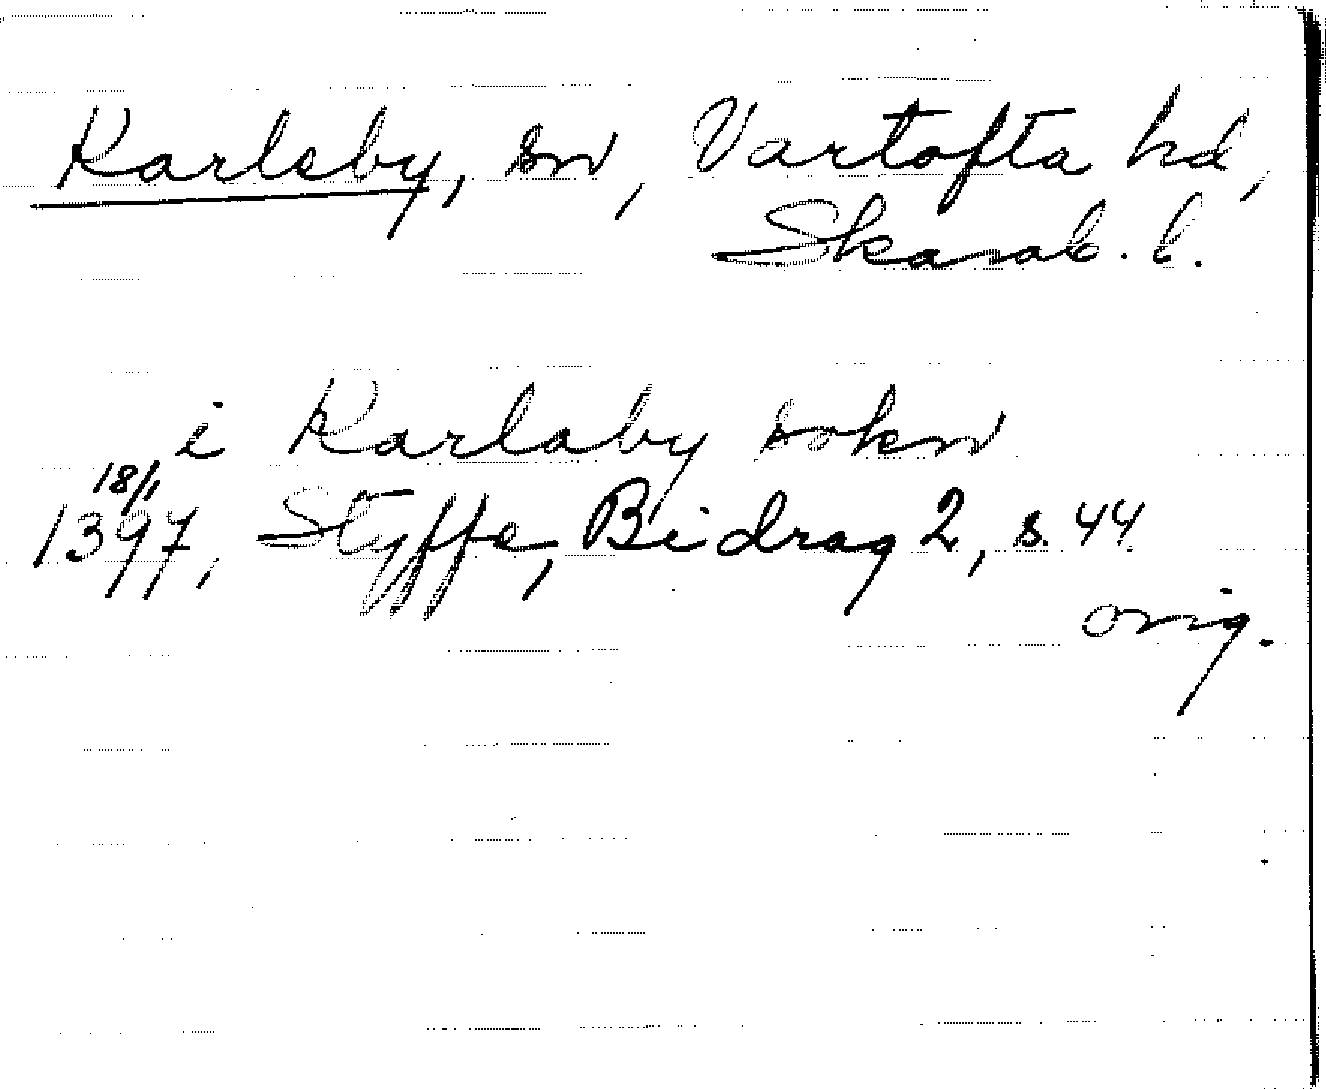 Karleby, sn, Vartofta hd,
Skarab. l.
i Karlaby sokn
18/1
1397, Styffe, Bidrag 2, s. 44.
orig.